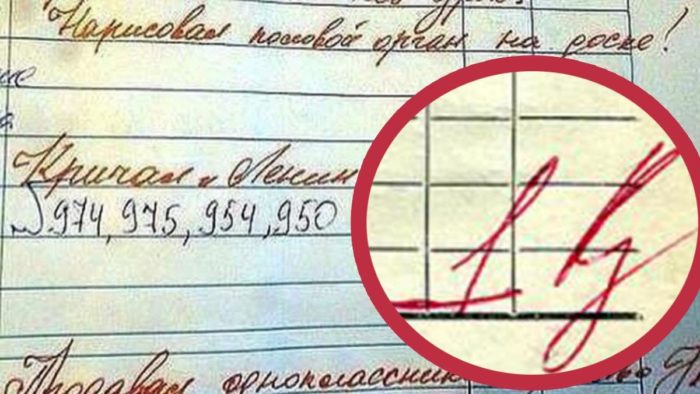 Нарисовал половой орган на доске!
Кричал „Ленин
974, 975, 954, 950
1
Продавал одноклассник